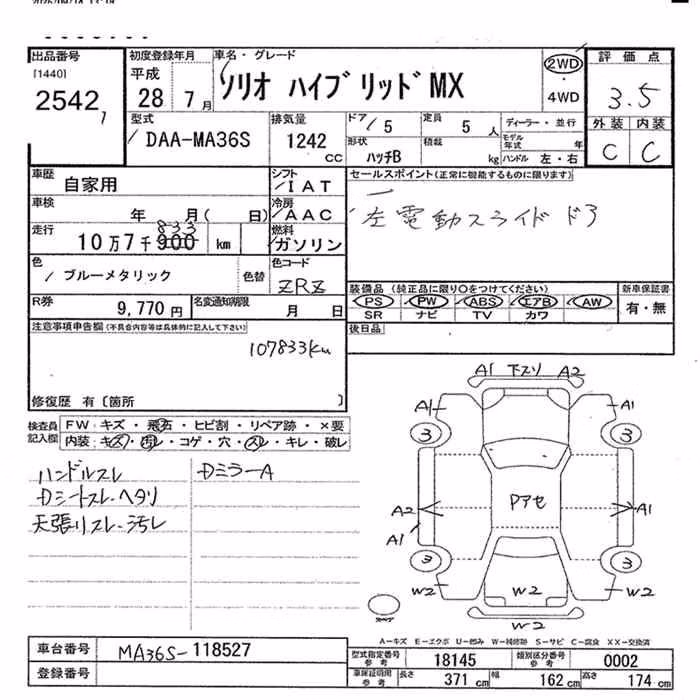 出品番号
[1440]
2542
初度登録年月
平成
28年 7月
車名・グレード
ソリオ ハイブリッドMX
2WD
4WD
評価点
3.5
外装 内装
C C
型式
DAA-MA36S
排気量
1242
cc
ドア 5
定員 5人
形状
ハッチB
積載 kg
ディーラー・並行
モデル年式 年
ハンドル 左・右
車歴
自家用
シフト
IAT
車検
年 月( 日)
冷房
AAC
走行
833
10万7千900 km
燃料
ガソリン
色
ブルーメタリック
色替
色コード
ZRZ
R券
9,770円
名変通知期限
月 日
セールスポイント(正常に機能するものに限ります)
左電動スライドドア
装備品(純正品に限り○をつけてください)
PS PW ABS エアB AW
SR ナビ TV カワ
新車保証書
有・無
後日品
注意事項申告欄(不具合内容等は具体的に記入して下さい)
107833km
修復歴 有〔箇所 〕
検査員記入欄
FW:キズ・飛石・ヒビ割・リペア跡・×要
内装:キズ・汚レ・コゲ・穴・スレ・キレ・破レ
ハンドルスレ
Dシートスレ・ヘタリ
天張リスレ・汚レ
DミラーA
A1 下スリ A2
A1 A1
3 3
A2 Pアセ A1
A1
3 3
W2 W2 W2
W2
A-キズ E-エクボ U-凹み W-補修跡 S-サビ C-腐食 XX-交換済
車台番号
MA36S-118527
登録番号
型式指定番号
参考
18145
類別区分番号
参考
0002
車庫証明用
参考
長さ 371cm 幅 162cm 高さ 174cm